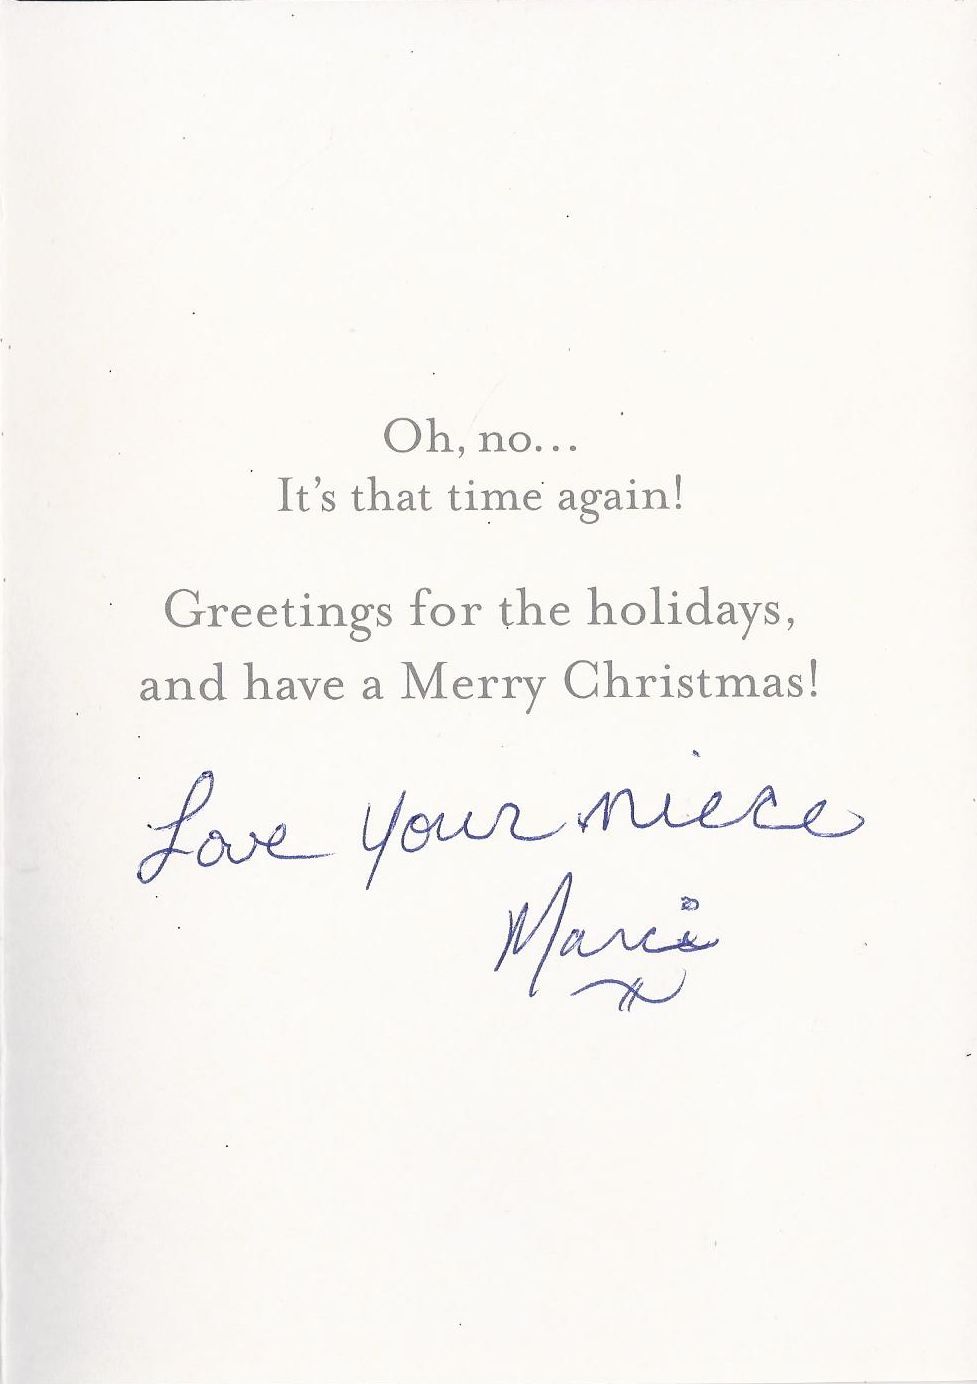 Oh, no...
It's that time again!
Greetings for the holidays,
and have a Merry Christmas!
Love your niece
Marci